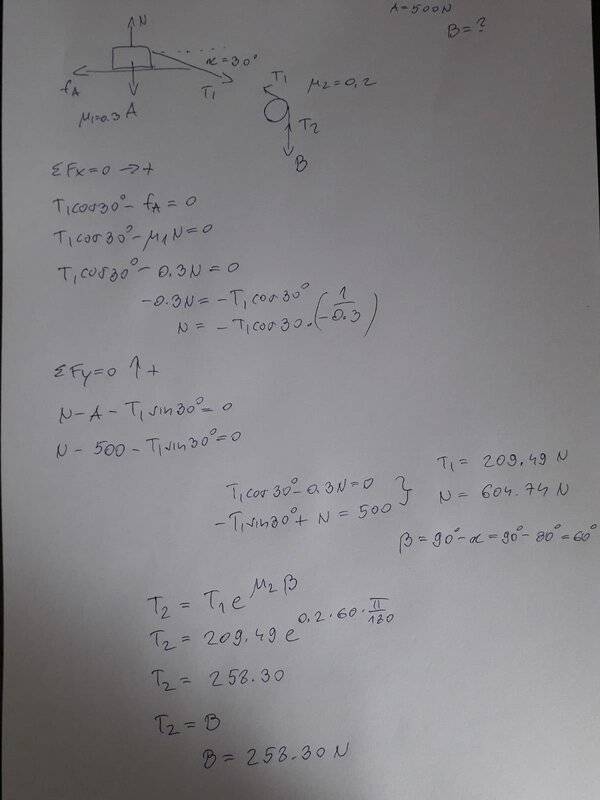 A = 500N
B = ?
N
α = 30°
fA
T1
A
μ1=0.3
T1
μ2 = 0,2
T2
B
ΣFx=0 → +
T1cos30° - fA = 0
T1cos30° - μ1N = 0
T1cos30° - 0.3N = 0
-0.3N = -T1cos30°
N = -T1cos30·(1/-0.3)
ΣFy=0 ↑ +
N - A - T1sin30° = 0
N - 500 - T1sin30° = 0
T1cos30° - 0.3N = 0 }
-T1sin30° + N = 500
T1 = 209.49 N
N = 604.74 N
β = 90° - α = 90° - 30° = 60°
T2 = T1 e^μ2β
T2 = 209.49 e^0,2·60·π/180
T2 = 258.30
T2 = B
B = 258.30 N